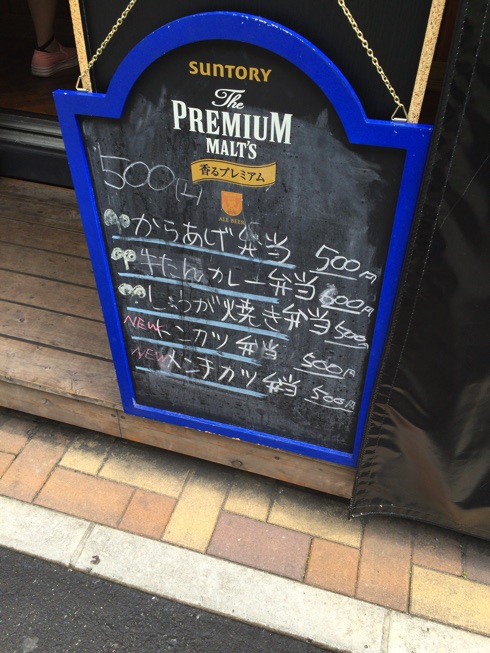 SUNTORY
The
PREMIUM
MALT'S
香るプレミアム
ALE BEER
からあげ弁当 500円
牛たんカレー弁当 500円
しょうが焼き弁当 500
NEW トンカツ弁当 500円
NEW メンチカツ弁当 500円